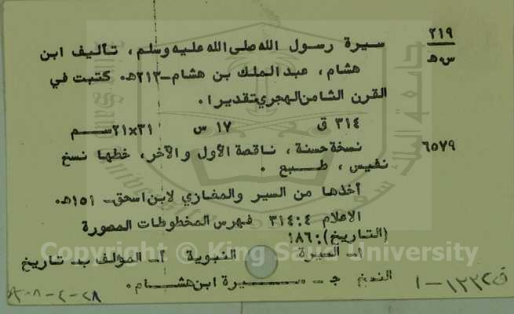 ٢١٩
س.ه
سيرة رسول الله صلى الله عليه وسلم، تأليف ابن
هشام، عبد الملك بن هشام -٢١٣هـ. كتبت في
القرن الثامن الهجري تقديرا.
٣١٤ ق ١٧ س ٣١×٢١سم
٦٥٧٩
نسخة حسنة، ناقصة الأول والآخر، خطها نسخ
نفيس، طبع.
أخذها من السير والمغازي لابن اسحق -١٥١هـ.
الاعلام ٤:٣١٤ فهرس المخطوطات المصورة
(التاريخ): ١٨٦
١- السيرة النبوية أ- المؤلف ب- تاريخ
النسخ ج- سيرة ابن هشام.
ف ١٣٣٢ - ١
Copyright © King Saud University